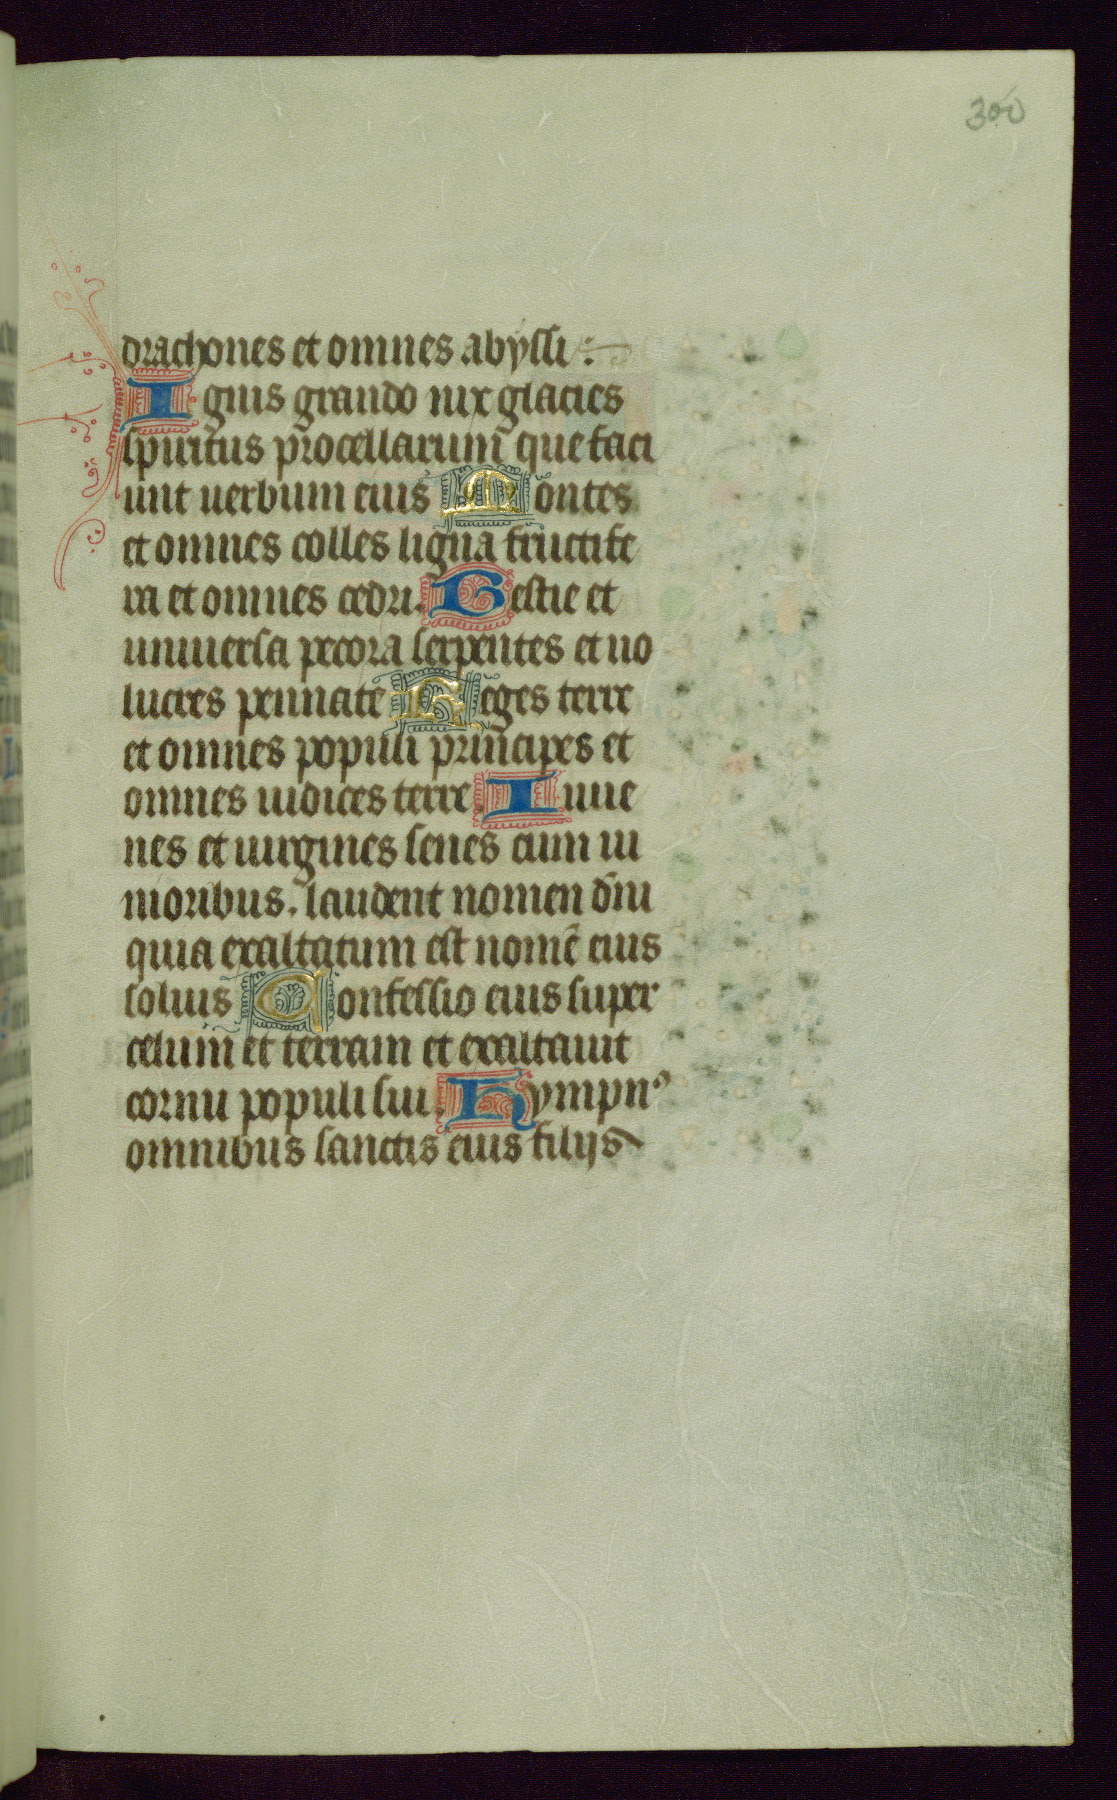 300
drachones et omnes abyssi :
Ignis grando nix glacies
spiritus procellarum que faci
unt uerbum eius Montes
et omnes colles ligna fructife
ra et omnes cedri. Bestie et
uniuersa pecora serpentes et uo
lucres pennate Reges terre
et omnes populi principes et
omnes iudices terre Iuue
nes et uirgines senes cum iu
nioribus. laudent nomen dñi
quia exaltatum est nomē eius
solius Confessio eius super
celum et terram et exaltauit
cornu populi sui. Hympnꝰ
omnibus sanctis eius filijs